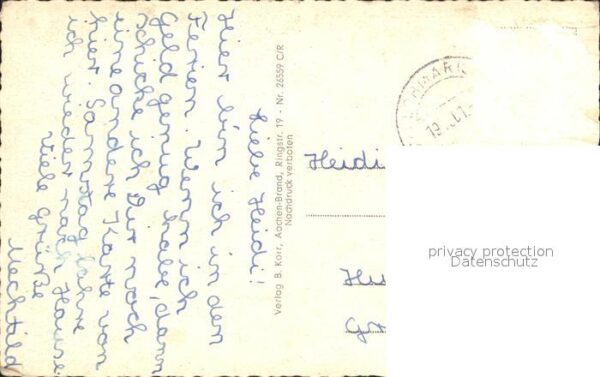 Liebe Heidi!
Hier bin ich in den
Ferien. Wenn ich
Geld genug habe, dann
schicke ich Dir noch
eine andere Karte von
hier. Samstag fahre
ich wieder nach Hause.
Viele Grüße
Mechtild
Verlag B. Korr, Aachen-Brand, Ringstr. 19 - Nr. 26559 C/R
Nachdruck verboten
Heidi
privacy protection
Datenschutz